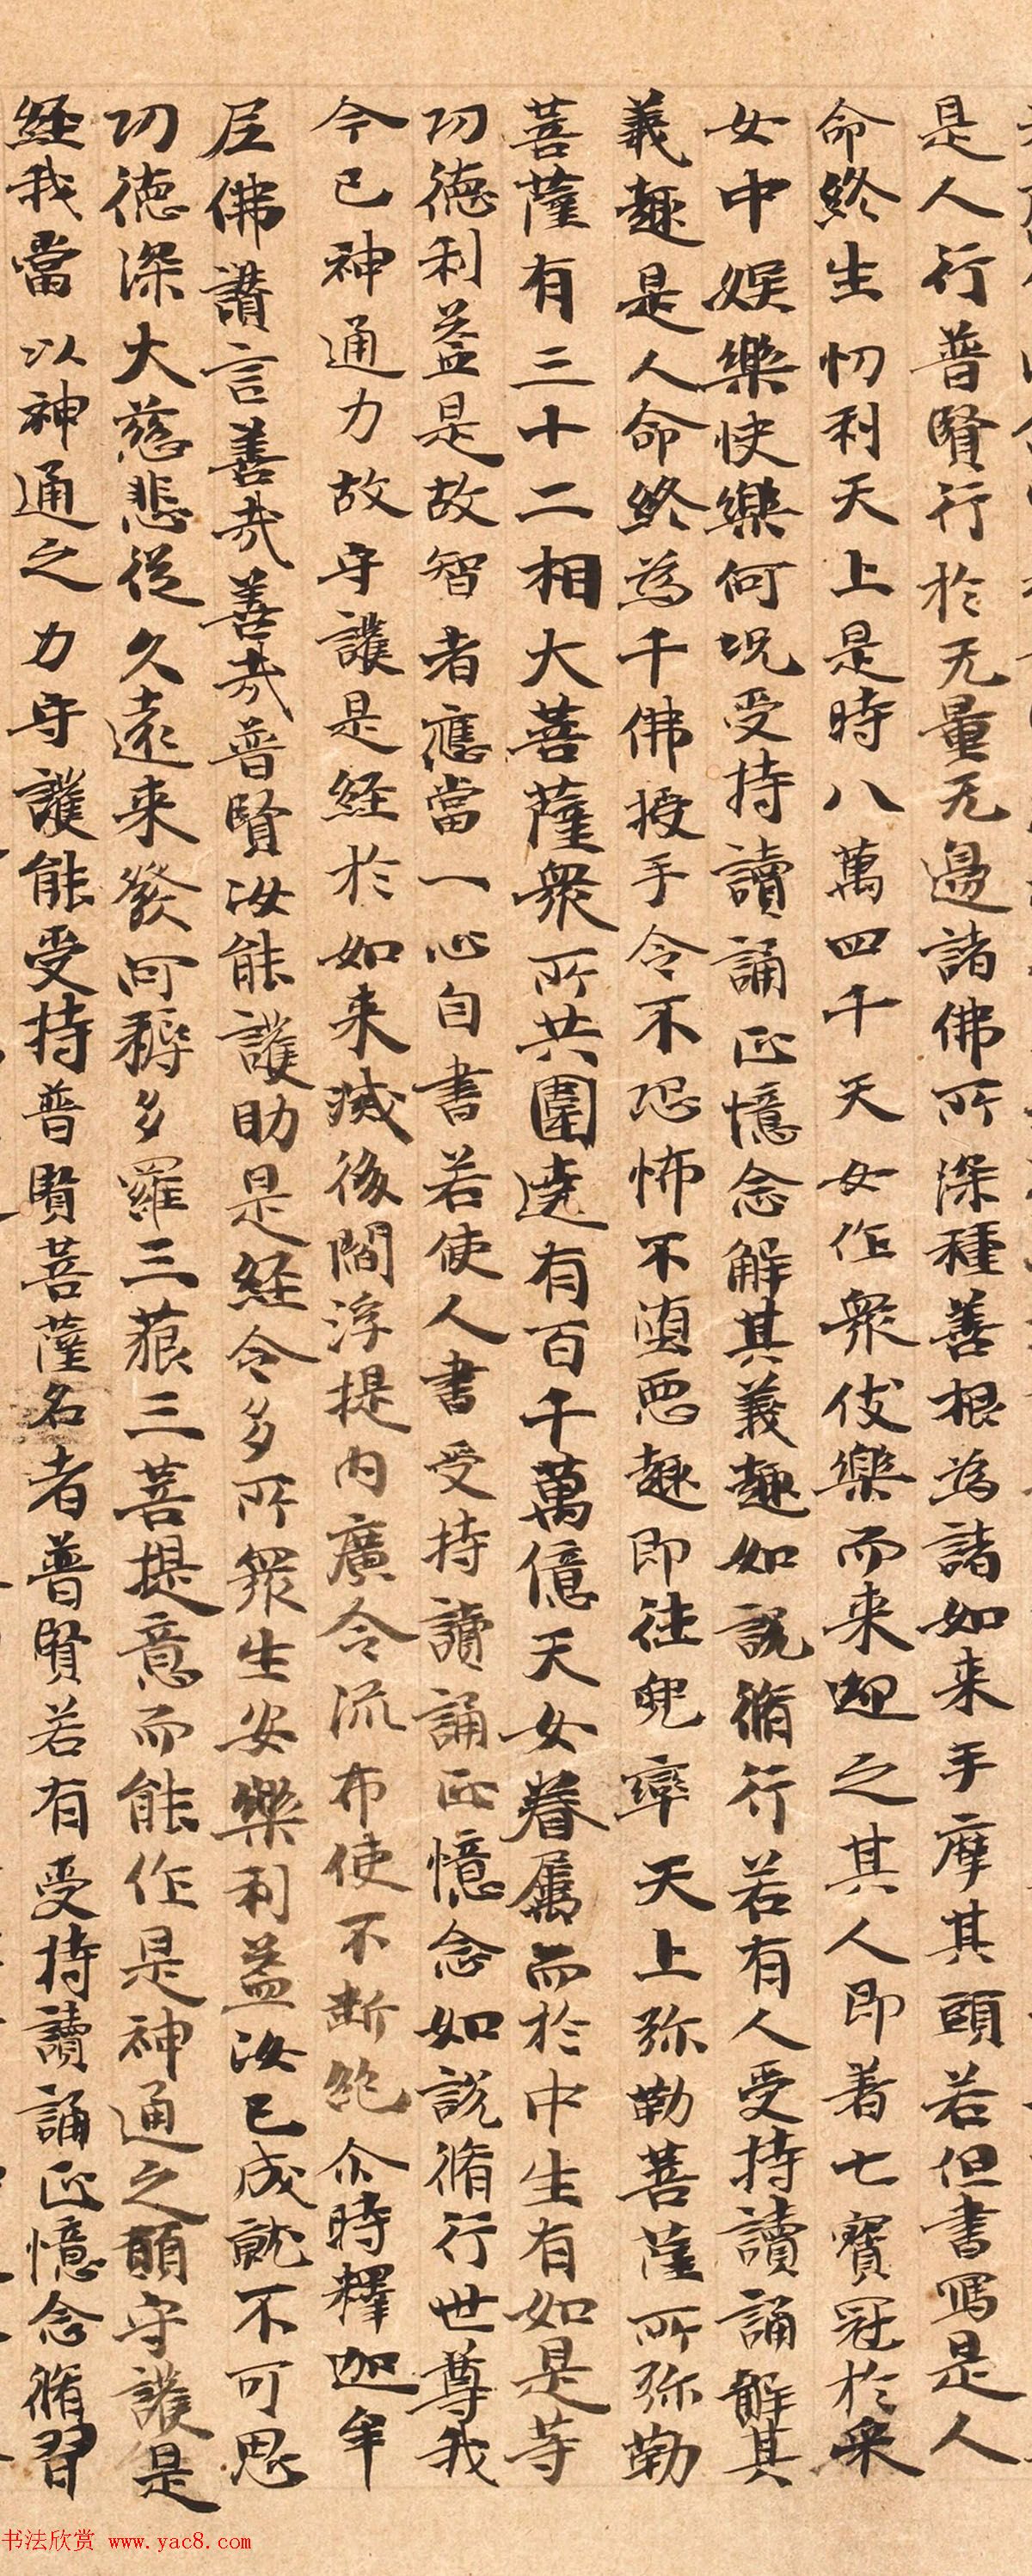 是人行普賢行於无量无邊諸佛所深種善根為諸如来手摩其頭若但書寫是人
命終生忉利天上是時八萬四千天女作眾伎樂而来迎之其人即着七寶冠於采
女中娛樂快樂何況受持讀誦正憶念解其義趣如說脩行若有人受持讀誦解其
義趣是人命終為千佛授手令不恐怖不墮惡趣即往兜率天上弥勒菩薩所弥勒
菩薩有三十二相大菩薩眾所共圍遶有百千萬億天女眷屬而於中生有如是等
功德利益是故智者應當一心自書若使人書受持讀誦正憶念如說脩行世尊我
今已神通力故守護是経於如来滅後閻浮提内廣令流布使不断絶尒時釋迦牟
尼佛讚言善哉善哉普賢汝能護助是経令多所眾生安樂利益汝已成就不可思
功德深大慈悲從久遠来發阿耨多羅三藐三菩提意而能作是神通之願守護是
経我當以神通之力守護能受持普賢菩薩名者普賢若有受持讀誦正憶念脩習
书法欣赏 www.yac8.com